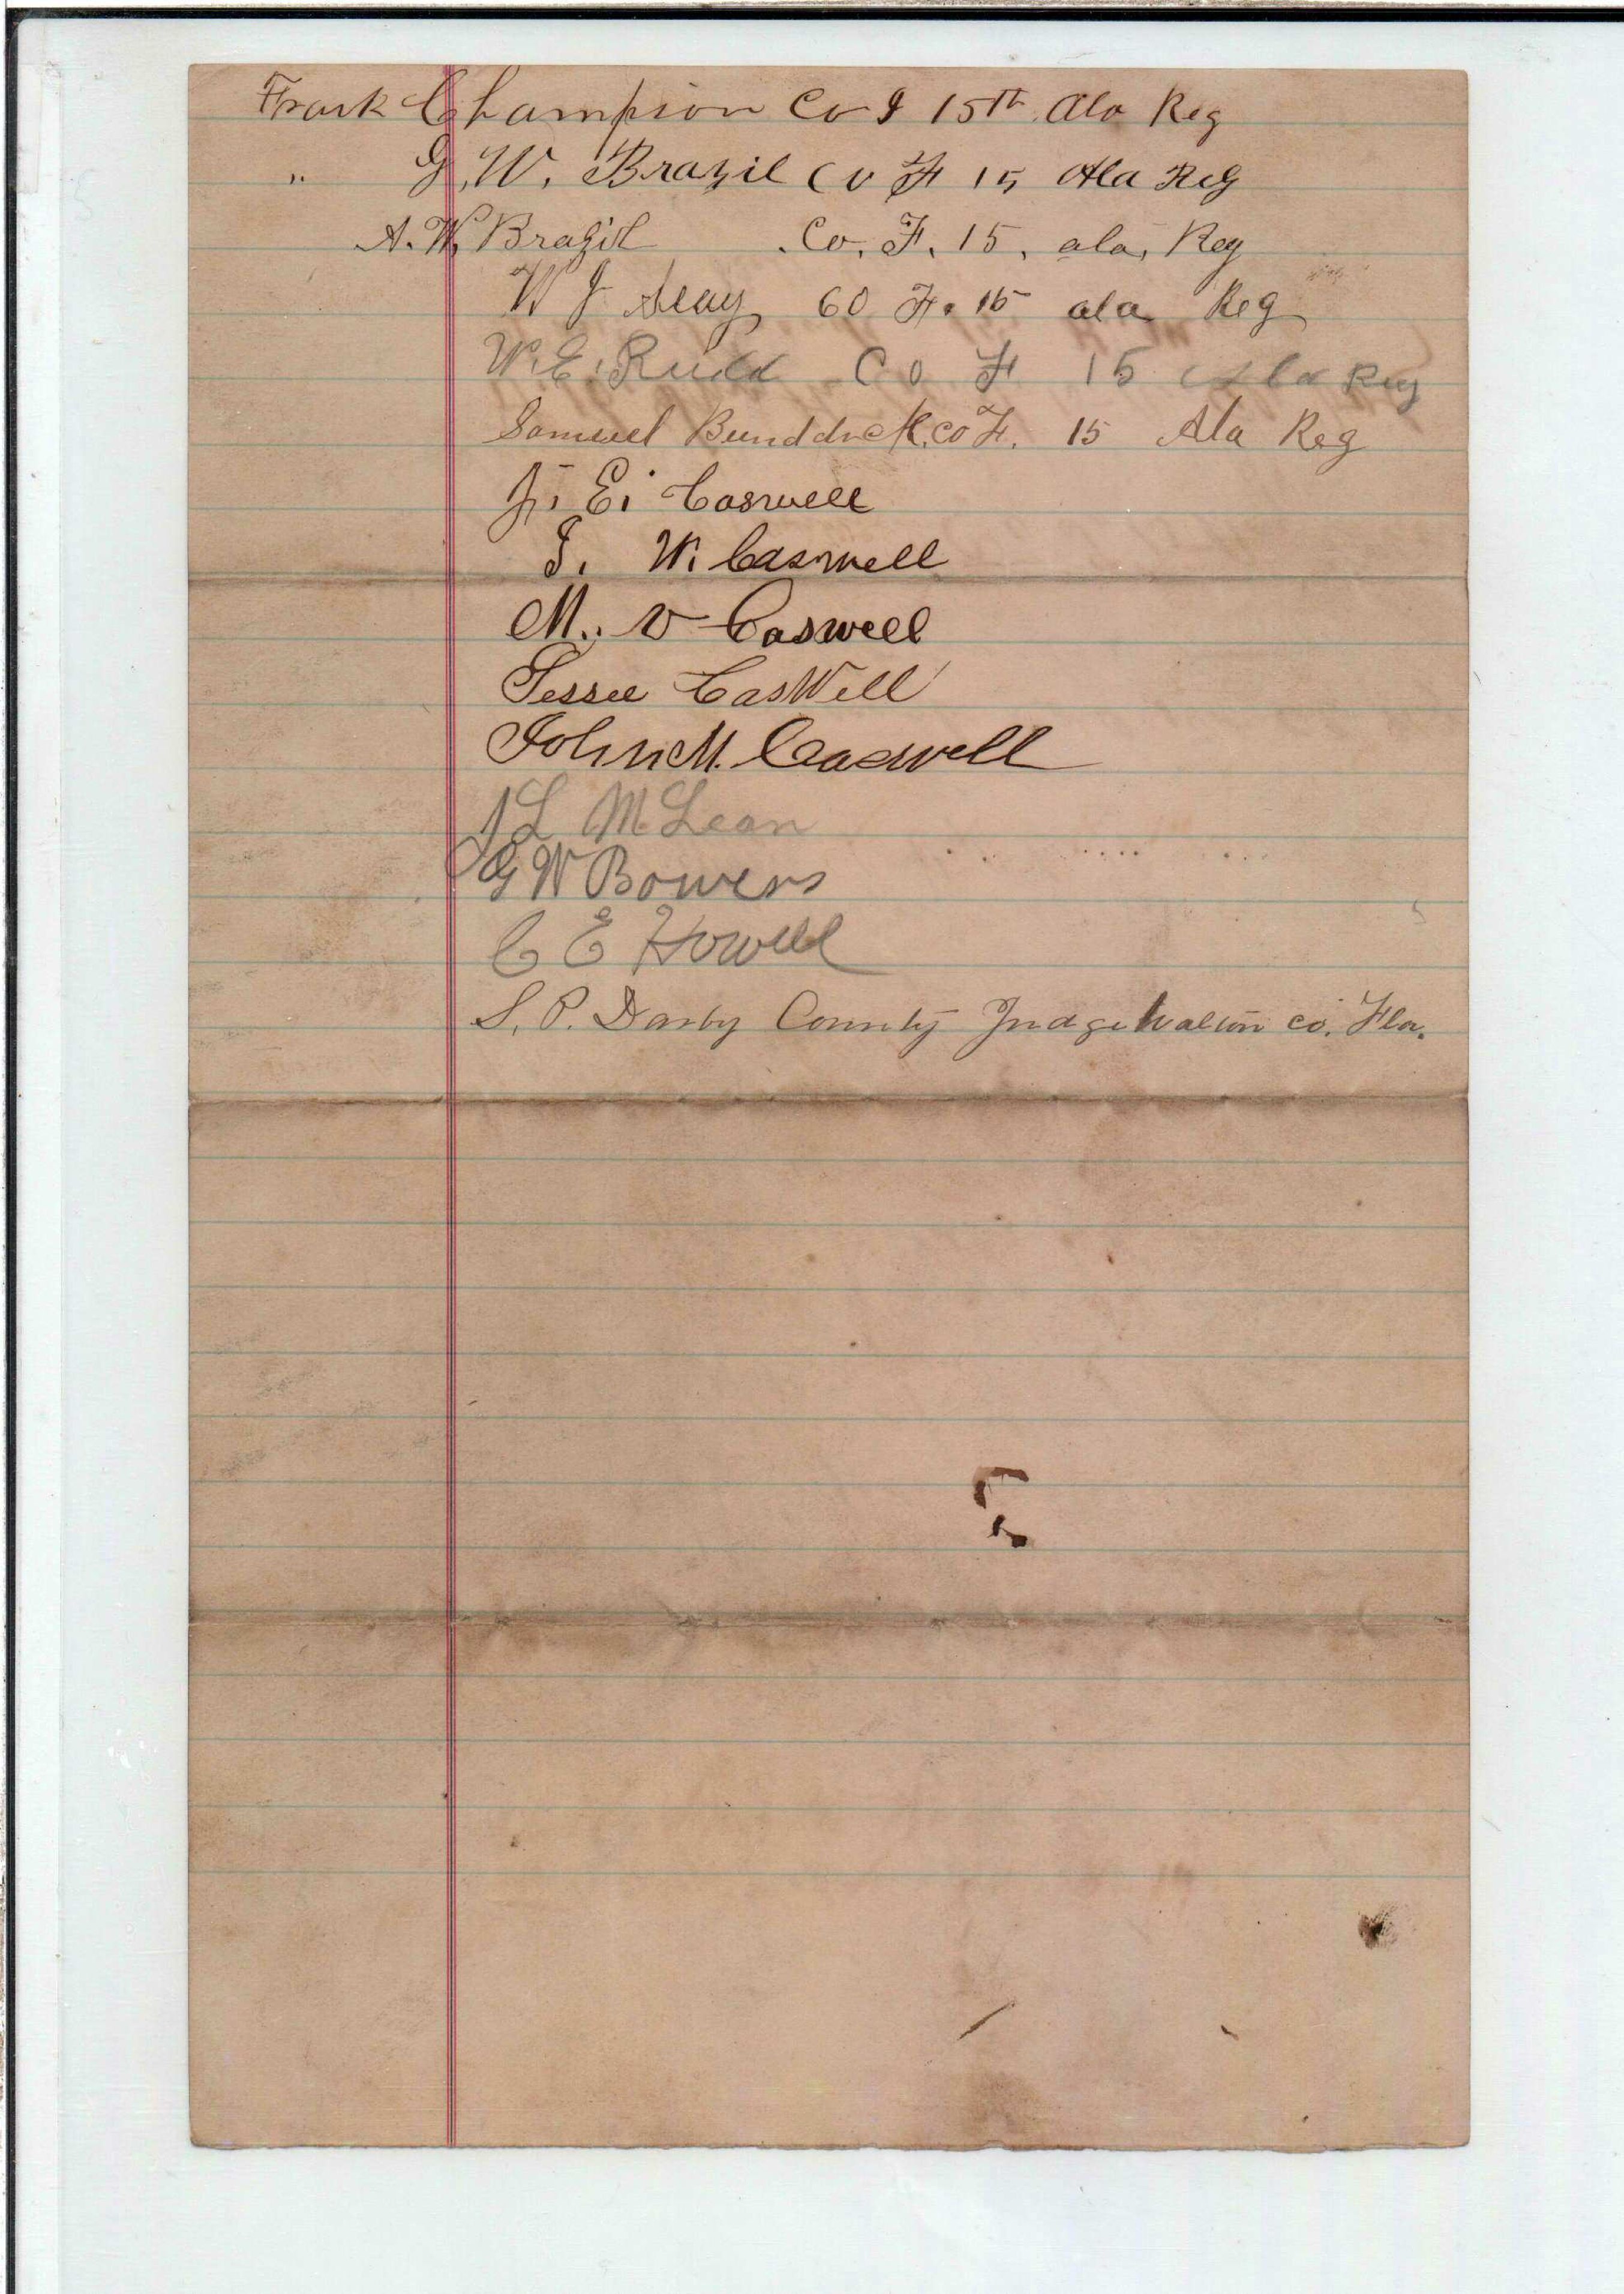 Frank Champion Co I 15th Ala Reg
" G. W. Brazil Co F 15 Ala Reg
A. W. Brazil Co. F. 15. ala, Reg
W J Seay 60 F. 15 ala Reg
W. E. Rudd Co F 15 Ala Reg
Samuel Bunddrick. co F. 15 Ala Reg
J. E. Caswell
J. W. Caswell
M. V Caswell
Jessee CasWell
John M. Caswell
J L McLean
G W Bowers
C E Howell
S. P. Darby County Judge Walton co. Fla.